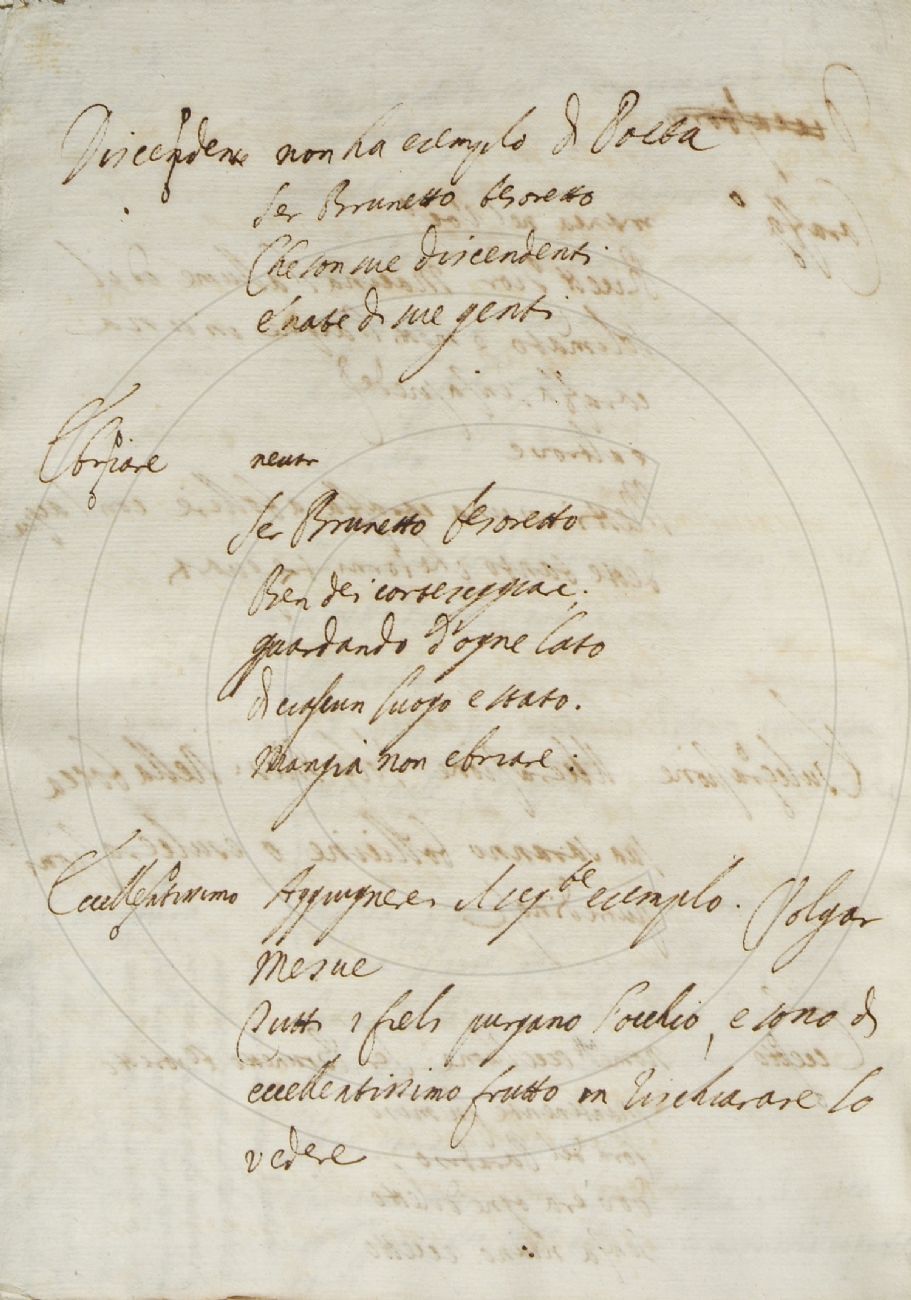 Discendente non ha esempio di Poeta
Ser Brunetto tesoretto
Che son sue discendenti
e nate di sue genti
Ebriare neutr
Ser Brunetto tesoretto
Ben dei corteseggiare
guardando d'ogne lato
di ciascun luogo e stato.
Mangia non ebriare.
Eccellentissimo Aggiugnere il seg.te esempio. Volgar
Mesue
Tutti i fieli purgano l'occhio, e sono di
eccellentissimo frutto in rischiarare lo
vedere